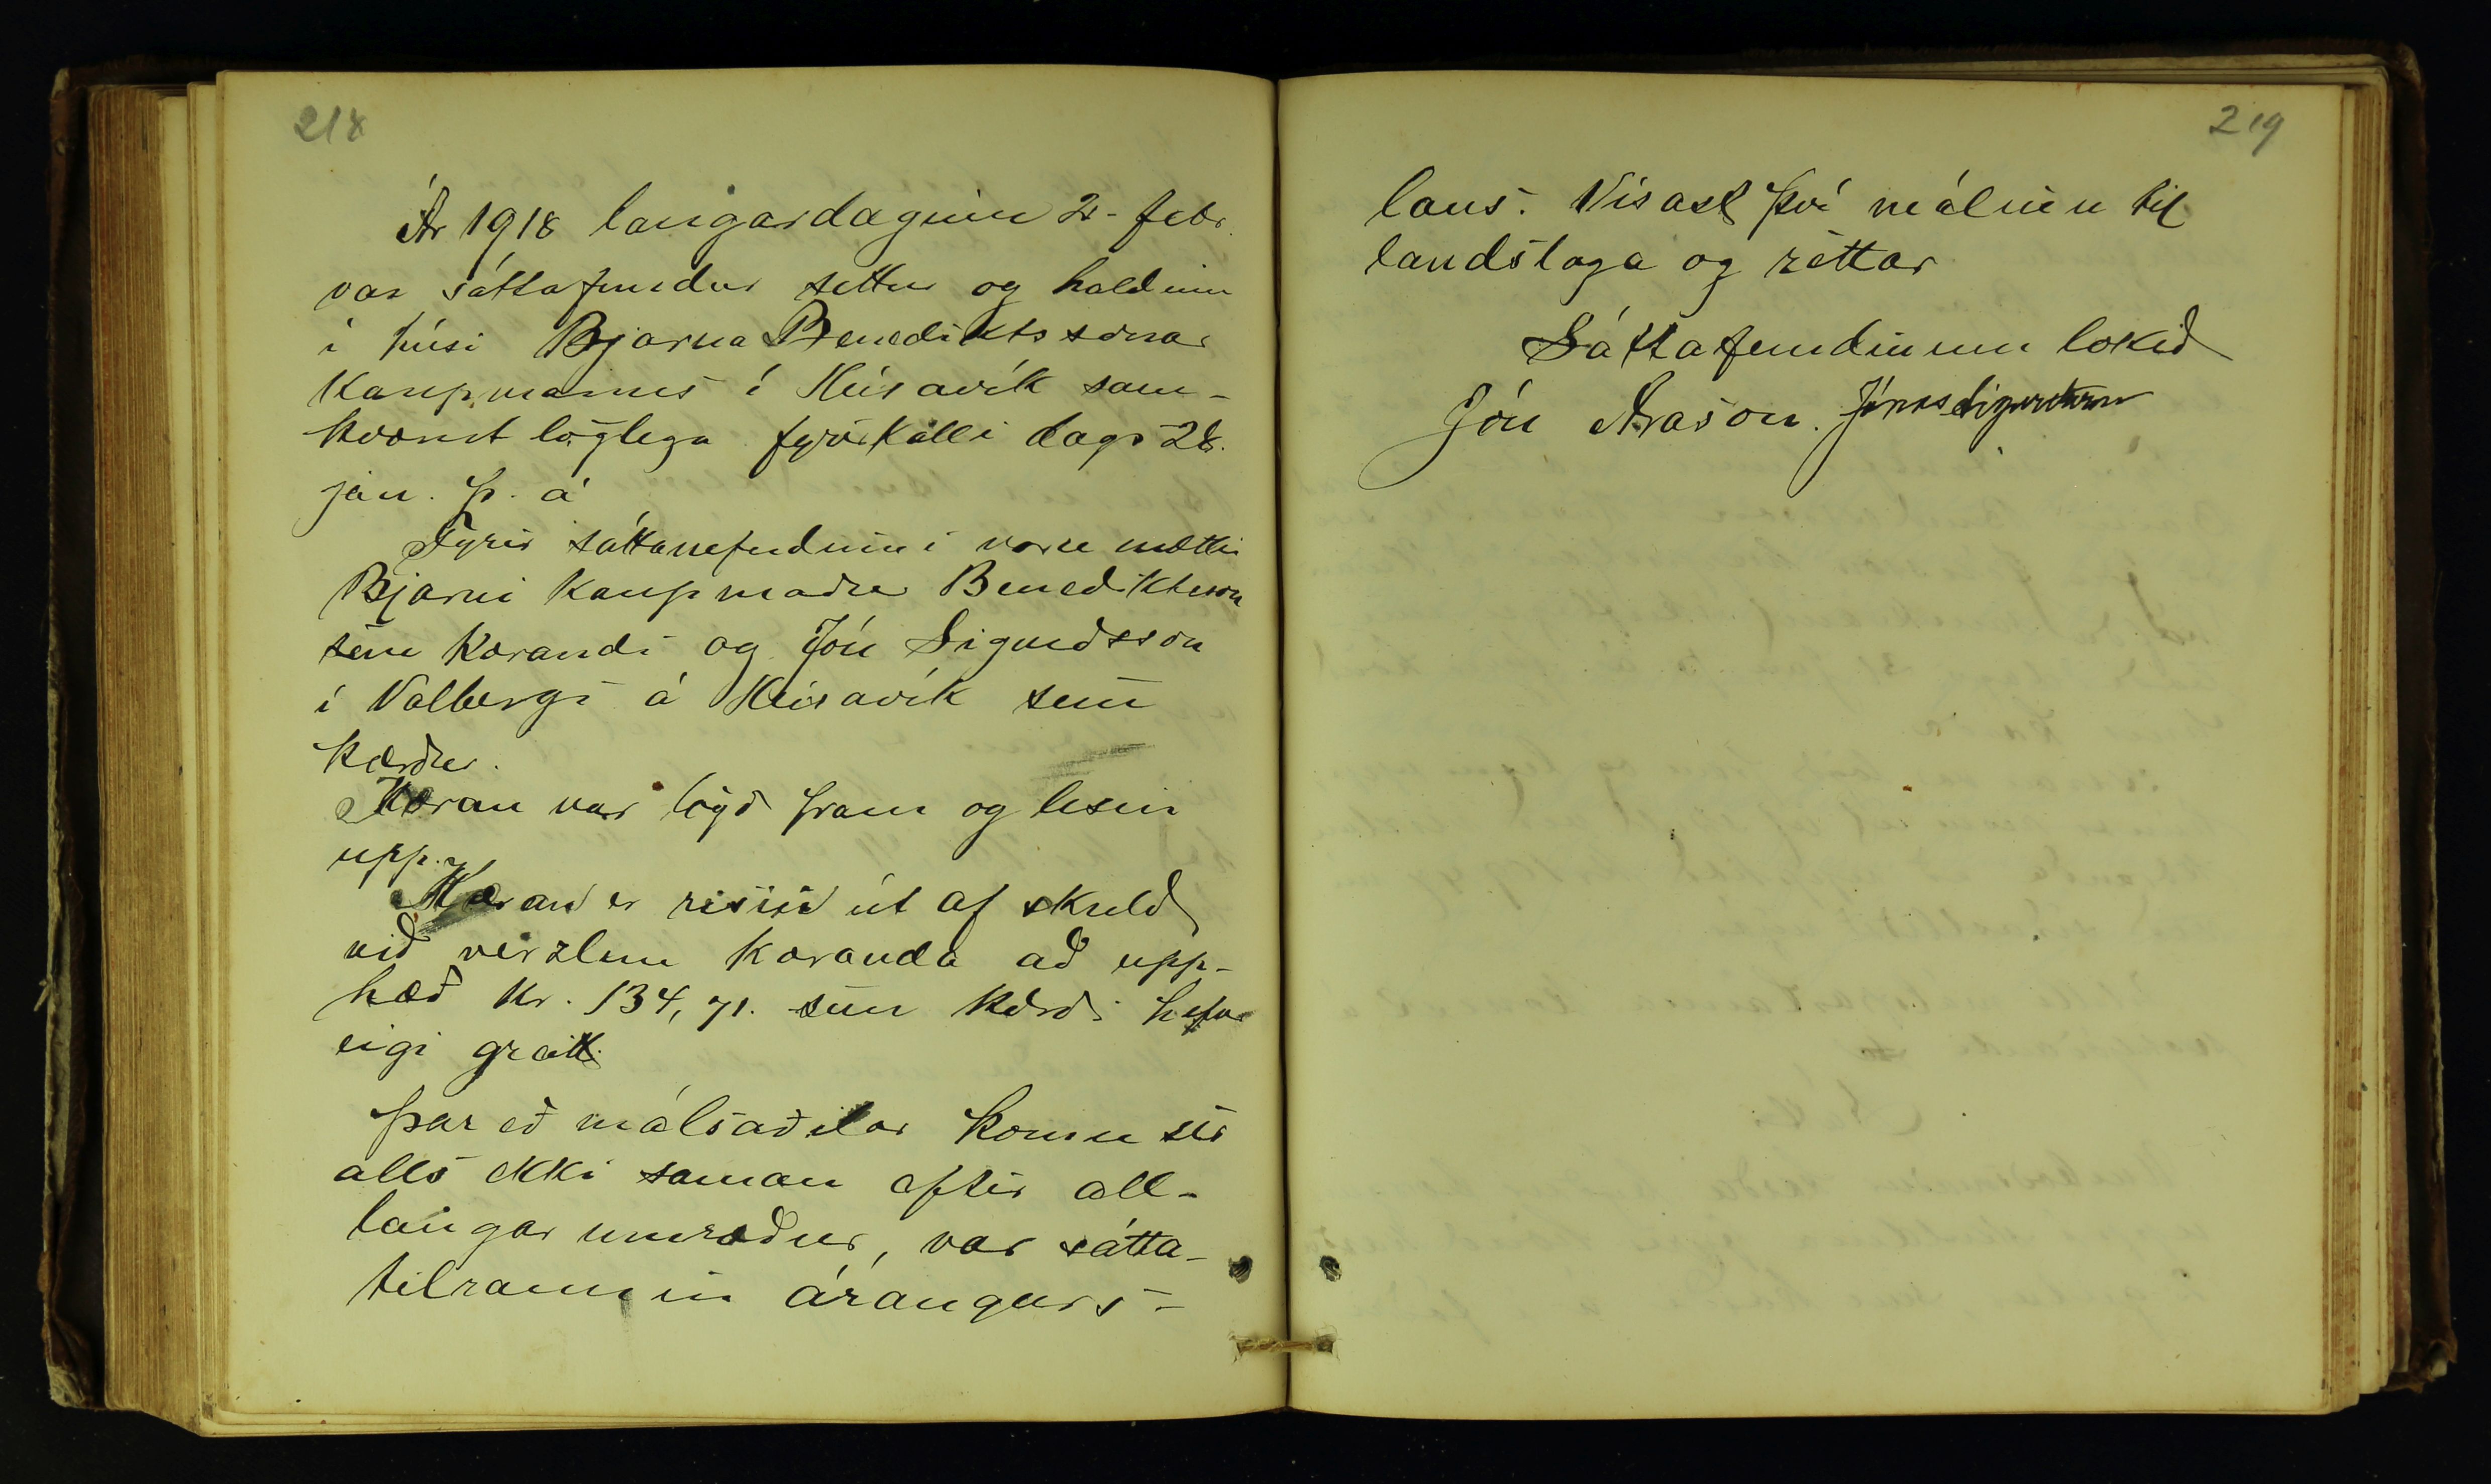 218
Ár 1918 laugardaginn 2. febr.
var sáttafundur settur og haldinn
í húsi Bjarna Benediktssonar
kaupmanns í Húsavík sam-
kvæmt löglega fyrirkalli dags 28.
jan. þ. á
Fyrir sáttanefndinni voru mættir
Bjarni kaupmaður Benediktsson
sem kærandi og Jón Sigurðsson
í Vallbergi á Húsavík sem
kærður.
Kæran var lögð fram og lesin
upp.
Kæran er risin út af skuld
við verzlun kæranda að upp-
hæð kr. 134,71. sem kærði hefur
eigi greitt.
Þar eð málsaðilar komu sér
alls ekki saman eftir all-
langar umræður, var sátta-
tilraunin árangurs-
219
laus. Vísast því málinu til
landslaga og réttar
Sáttafundinum lokið
Jón Arason. Jónas Sigurðsson